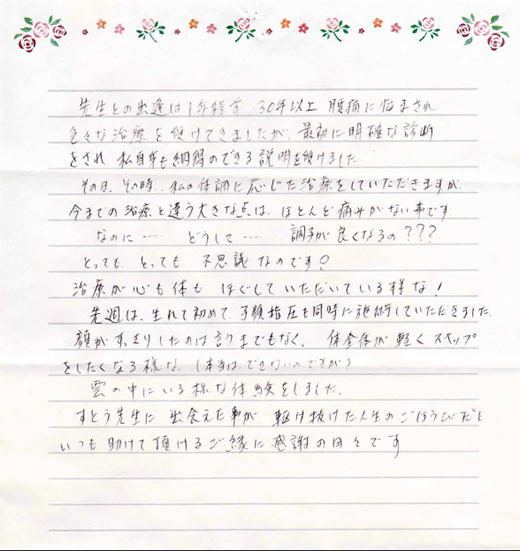 先生との出逢は1年程前 30年以上 腰痛に悩まされ
色々な治療を受けてきましたが、最初に明確な診断
をされ 私自身も納得のできる説明を受けました。
その日、その時、私の体調に応じた治療をしていただきますが、
今までの治療と違う大きな点は、ほとんど痛みがない事です。
なのに…… どうして…… 調子が良くなるの???
とっても、とっても 不思議なのです?
治療が心も体も ほぐしていただいている様な!
先週は、生れて初めて、子顔指圧も同時に施術していただきました。
顔がすっきりしたのは言うまでもなく、体全体が軽く スキップ
をしたくなる様な、(本当はできないのですが)
雲の中にいる様な体験をしました。
すとう先生に 出会えた事が、駆け抜けた人生のごほうびだと
いつも助けて頂けるご縁に感謝の日々です